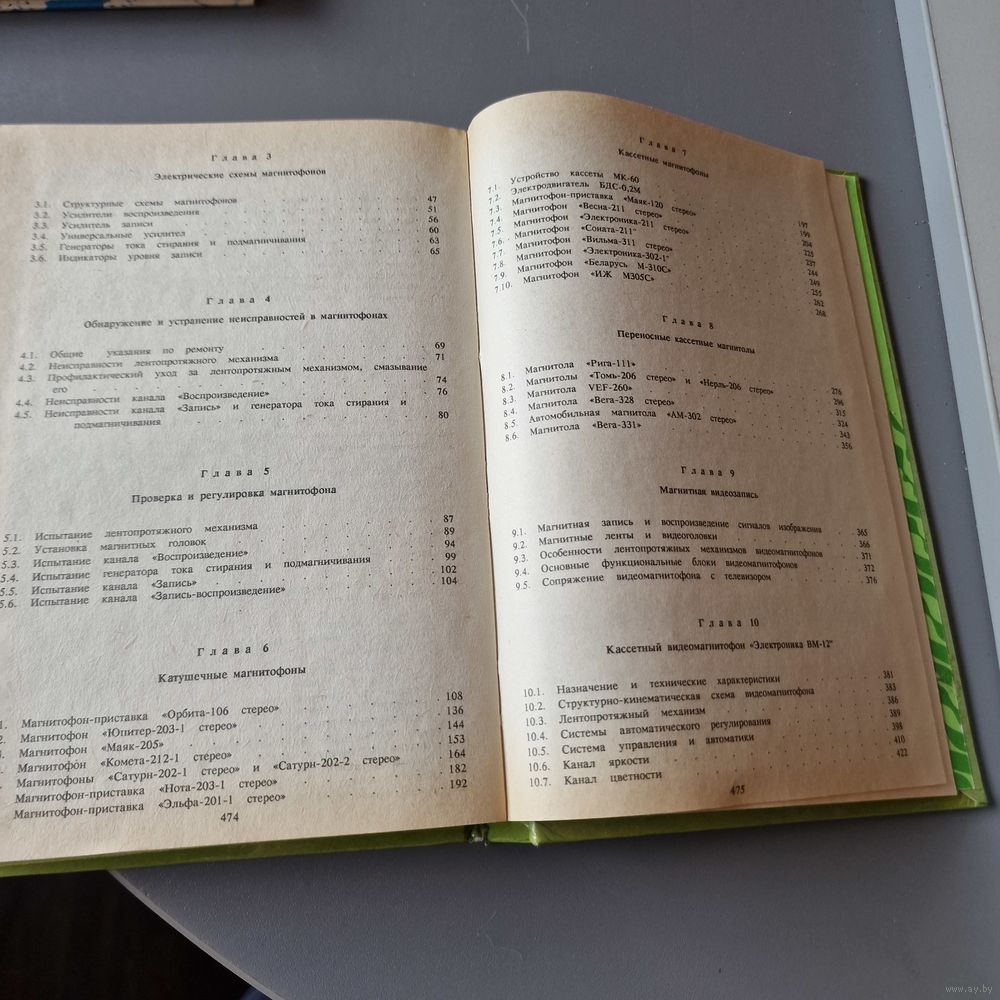 Глава 3
Электрические схемы магнитофонов
3.1. Структурные схемы магнитофонов 47
3.2. Усилители воспроизведения 51
3.3. Усилитель записи 56
3.4. Универсальные усилител 60
3.5. Генераторы тока стирания и подмагничивания 63
3.6. Индикаторы уровня записи 65
Глава 4
Обнаружение и устранение неисправностей в магнитофонах
4.1. Общие указания по ремонту 69
4.2. Неисправности лентопротяжного механизма 71
4.3. Профилактический уход за лентопротяжным механизмом, смазывание
его 74
4.4. Неисправности канала «Воспроизведение» 76
4.5. Неисправности канала «Запись» и генератора тока стирания и
подмагничивания 80
Глава 5
Проверка и регулировка магнитофона
5.1. Испытание лентопротяжного механизма 87
5.2. Установка магнитных головок 89
5.3. Испытание канала «Воспроизведение» 94
5.4. Испытание генератора тока стирания и подмагничивания 99
5.5. Испытание канала «Запись» 102
5.6. Испытание канала «Запись-воспроизведение» 104
Глава 6
Катушечные магнитофоны
1. Магнитофон-приставка «Орбита-106 стерео» 108
2. Магнитофон «Юпитер-203-1 стерео» 136
Магнитофон «Маяк-205» 144
Магнитофон «Комета-212-1 стерео» 153
Магнитофоны «Сатурн-202-1 стерео» и «Сатурн-202-2 стерео» 164
Магнитофон-приставка «Нота-203-1 стерео» 182
Магнитофон-приставка «Эльфа-201-1 стерео» 192
474
Глава 7
Кассетные магнитофоны
7.1. Устройство кассеты МК-60 197
7.2. Электродвигатель БДС-0,2М 199
7.3. Магнитофон-приставка «Маяк-120 стерео» 204
7.4. Магнитофон «Весна-211 стерео» 225
7.5. Магнитофон «Электроника-211 стерео» 237
7.6. Магнитофон «Соната-211" 244
7.7. Магнитофон «Вильма-311 стерео» 249
7.8. Магнитофон «Электроника-302-1" 255
7.9. Магнитофон «Беларусь М-310С» 262
7.10. Магнитофон «ИЖ М305С» 268
Глава 8
Переносные кассетные магнитолы
8.1. Магнитола «Рига-111» 276
8.2. Магнитолы «Томь-206 стерео» и «Нерль-206 стерео» 296
8.3. Магнитола VEF-260» 315
8.4. Магнитола «Вега-328 стерео» 324
8.5. Автомобильная магнитола «АМ-302 стерео» 343
8.6. Магнитола «Вега-331» 356
Глава 9
Магнитная видеозапись
9.1. Магнитная запись и воспроизведение сигналов изображения 365
9.2. Магнитные ленты и видеоголовки 366
9.3. Особенности лентопротяжных механизмов видеомагнитофонов 371
9.4. Основные функциональные блоки видеомагнитофонов 372
9.5. Сопряжение видеомагнитофона с телевизором 376
Глава 10
Кассетный видеомагнитофон «Электроника ВМ-12"
10.1. Назначение и технические характеристики 381
10.2. Структурно-кинематическая схема видеомагнитофона 383
10.3. Лентопротяжный механизм 386
10.4. Системы автоматического регулирования 389
10.5. Система управления и автоматики 398
10.6. Канал яркости 410
10.7. Канал цветности 422
475
www.ay.by